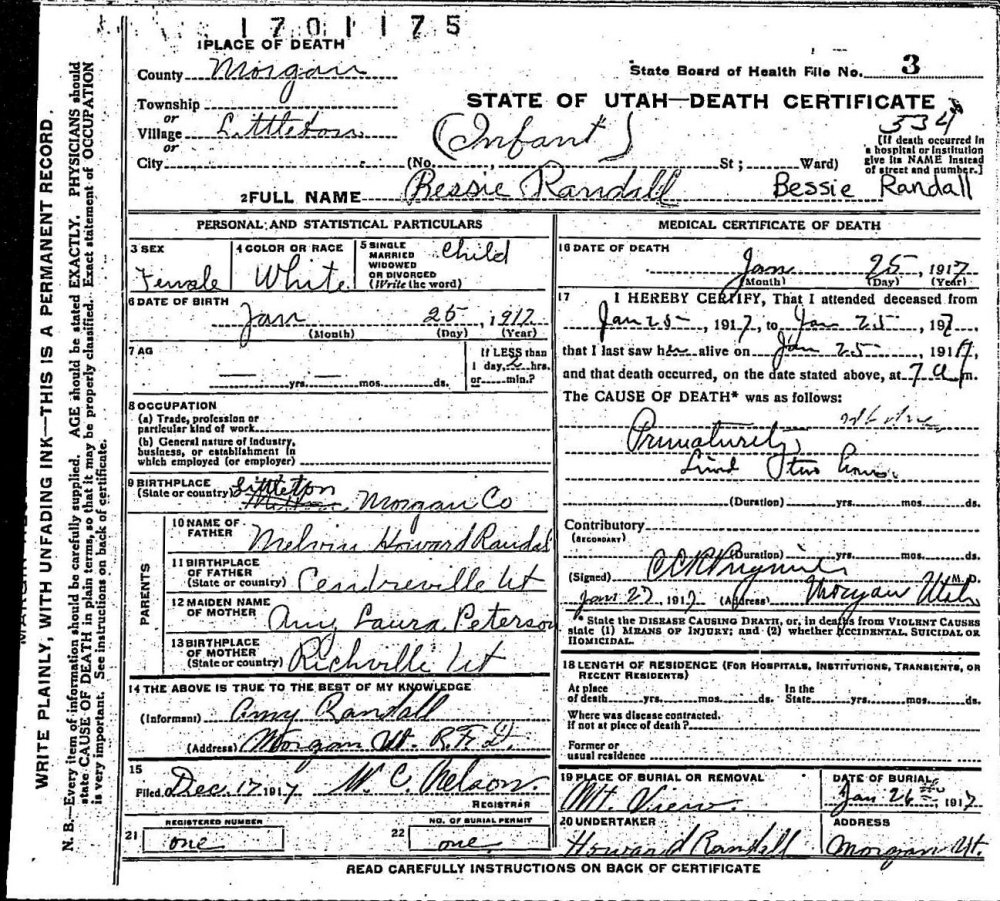 1701175
1 PLACE OF DEATH
County Morgan
State Board of Health File No. 3
Township
or
Village Littleton
or
City
STATE OF UTAH—DEATH CERTIFICATE
534
(Infant)
(No. St; Ward)
[If death occurred in
a hospital or institution
give its NAME instead
of street and number.]
2 FULL NAME Bessie Randall Bessie Randall
PERSONAL AND STATISTICAL PARTICULARS
3 SEX
Female
4 COLOR OR RACE
White
5 SINGLE
MARRIED
WIDOWED
OR DIVORCED
(Write the word)
Child
6 DATE OF BIRTH
Jan 25, 1917
(Month) (Day) (Year)
7 AG
yrs. mos. ds.
If LESS than
1 day, 2 hrs.
or min.?
8 OCCUPATION
(a) Trade, profession or
particular kind of work
(b) General nature of industry,
business, or establishment in
which employed (or employer)
9 BIRTHPLACE
(State or country) Littleton Morgan Co
PARENTS
10 NAME OF
FATHER
Melvin Howard Randal
11 BIRTHPLACE
OF FATHER
(State or country)
Cendreville Ut
12 MAIDEN NAME
OF MOTHER
Amy Laura Peterson
13 BIRTHPLACE
OF MOTHER
(State or country)
Richville Ut
14 THE ABOVE IS TRUE TO THE BEST OF MY KNOWLEDGE
(Informant) Amy Randall
(Address) Morgan Ut. R.F.D.
15
Filed Dec. 17, 1917 W. C. Nelson.
REGISTRAR
21
REGISTERED NUMBER
one
22
NO. OF BURIAL PERMIT
one
MEDICAL CERTIFICATE OF DEATH
16 DATE OF DEATH
Jan 25, 1917
(Month) (Day) (Year)
17 I HEREBY CERTIFY, That I attended deceased from
Jan 25, 1917, to Jan 25, 197,
that I last saw her alive on Jan 25, 1917,
and that death occurred, on the date stated above, at 7 a m.
The CAUSE OF DEATH* was as follows:
Prematurety
Lived two hours.
(Duration) yrs. mos. ds.
Contributory
(SECONDARY)
(Duration) yrs. mos. ds.
(Signed) M. D.
Jan 27, 1917 (Address) Morgan Utah
* State the DISEASE CAUSING DEATH, or, in deaths from VIOLENT CAUSES
state (1) MEANS OF INJURY; and (2) whether ACCIDENTAL, SUICIDAL OR
HOMICIDAL.
18 LENGTH OF RESIDENCE (FOR HOSPITALS, INSTITUTIONS, TRANSIENTS, OR
RECENT RESIDENTS)
At place
of death yrs. mos. ds.
In the
State yrs. mos. ds.
Where was disease contracted.
if not at place of death?
Former or
usual residence
19 PLACE OF BURIAL OR REMOVAL
Mt. View
DATE OF BURIAL
Jan. 26 1917
20 UNDERTAKER
Howard Randall
ADDRESS
Morgan Ut.
READ CAREFULLY INSTRUCTIONS ON BACK OF CERTIFICATE
WRITE PLAINLY, WITH UNFADING INK—THIS IS A PERMANENT RECORD.
N. B.—Every item of information should be carefully supplied. AGE should be stated EXACTLY. PHYSICIANS should
state CAUSE OF DEATH in plain terms, so that it may be properly classified. Exact statement of OCCUPATION
is very important. See instructions on back of certificate.